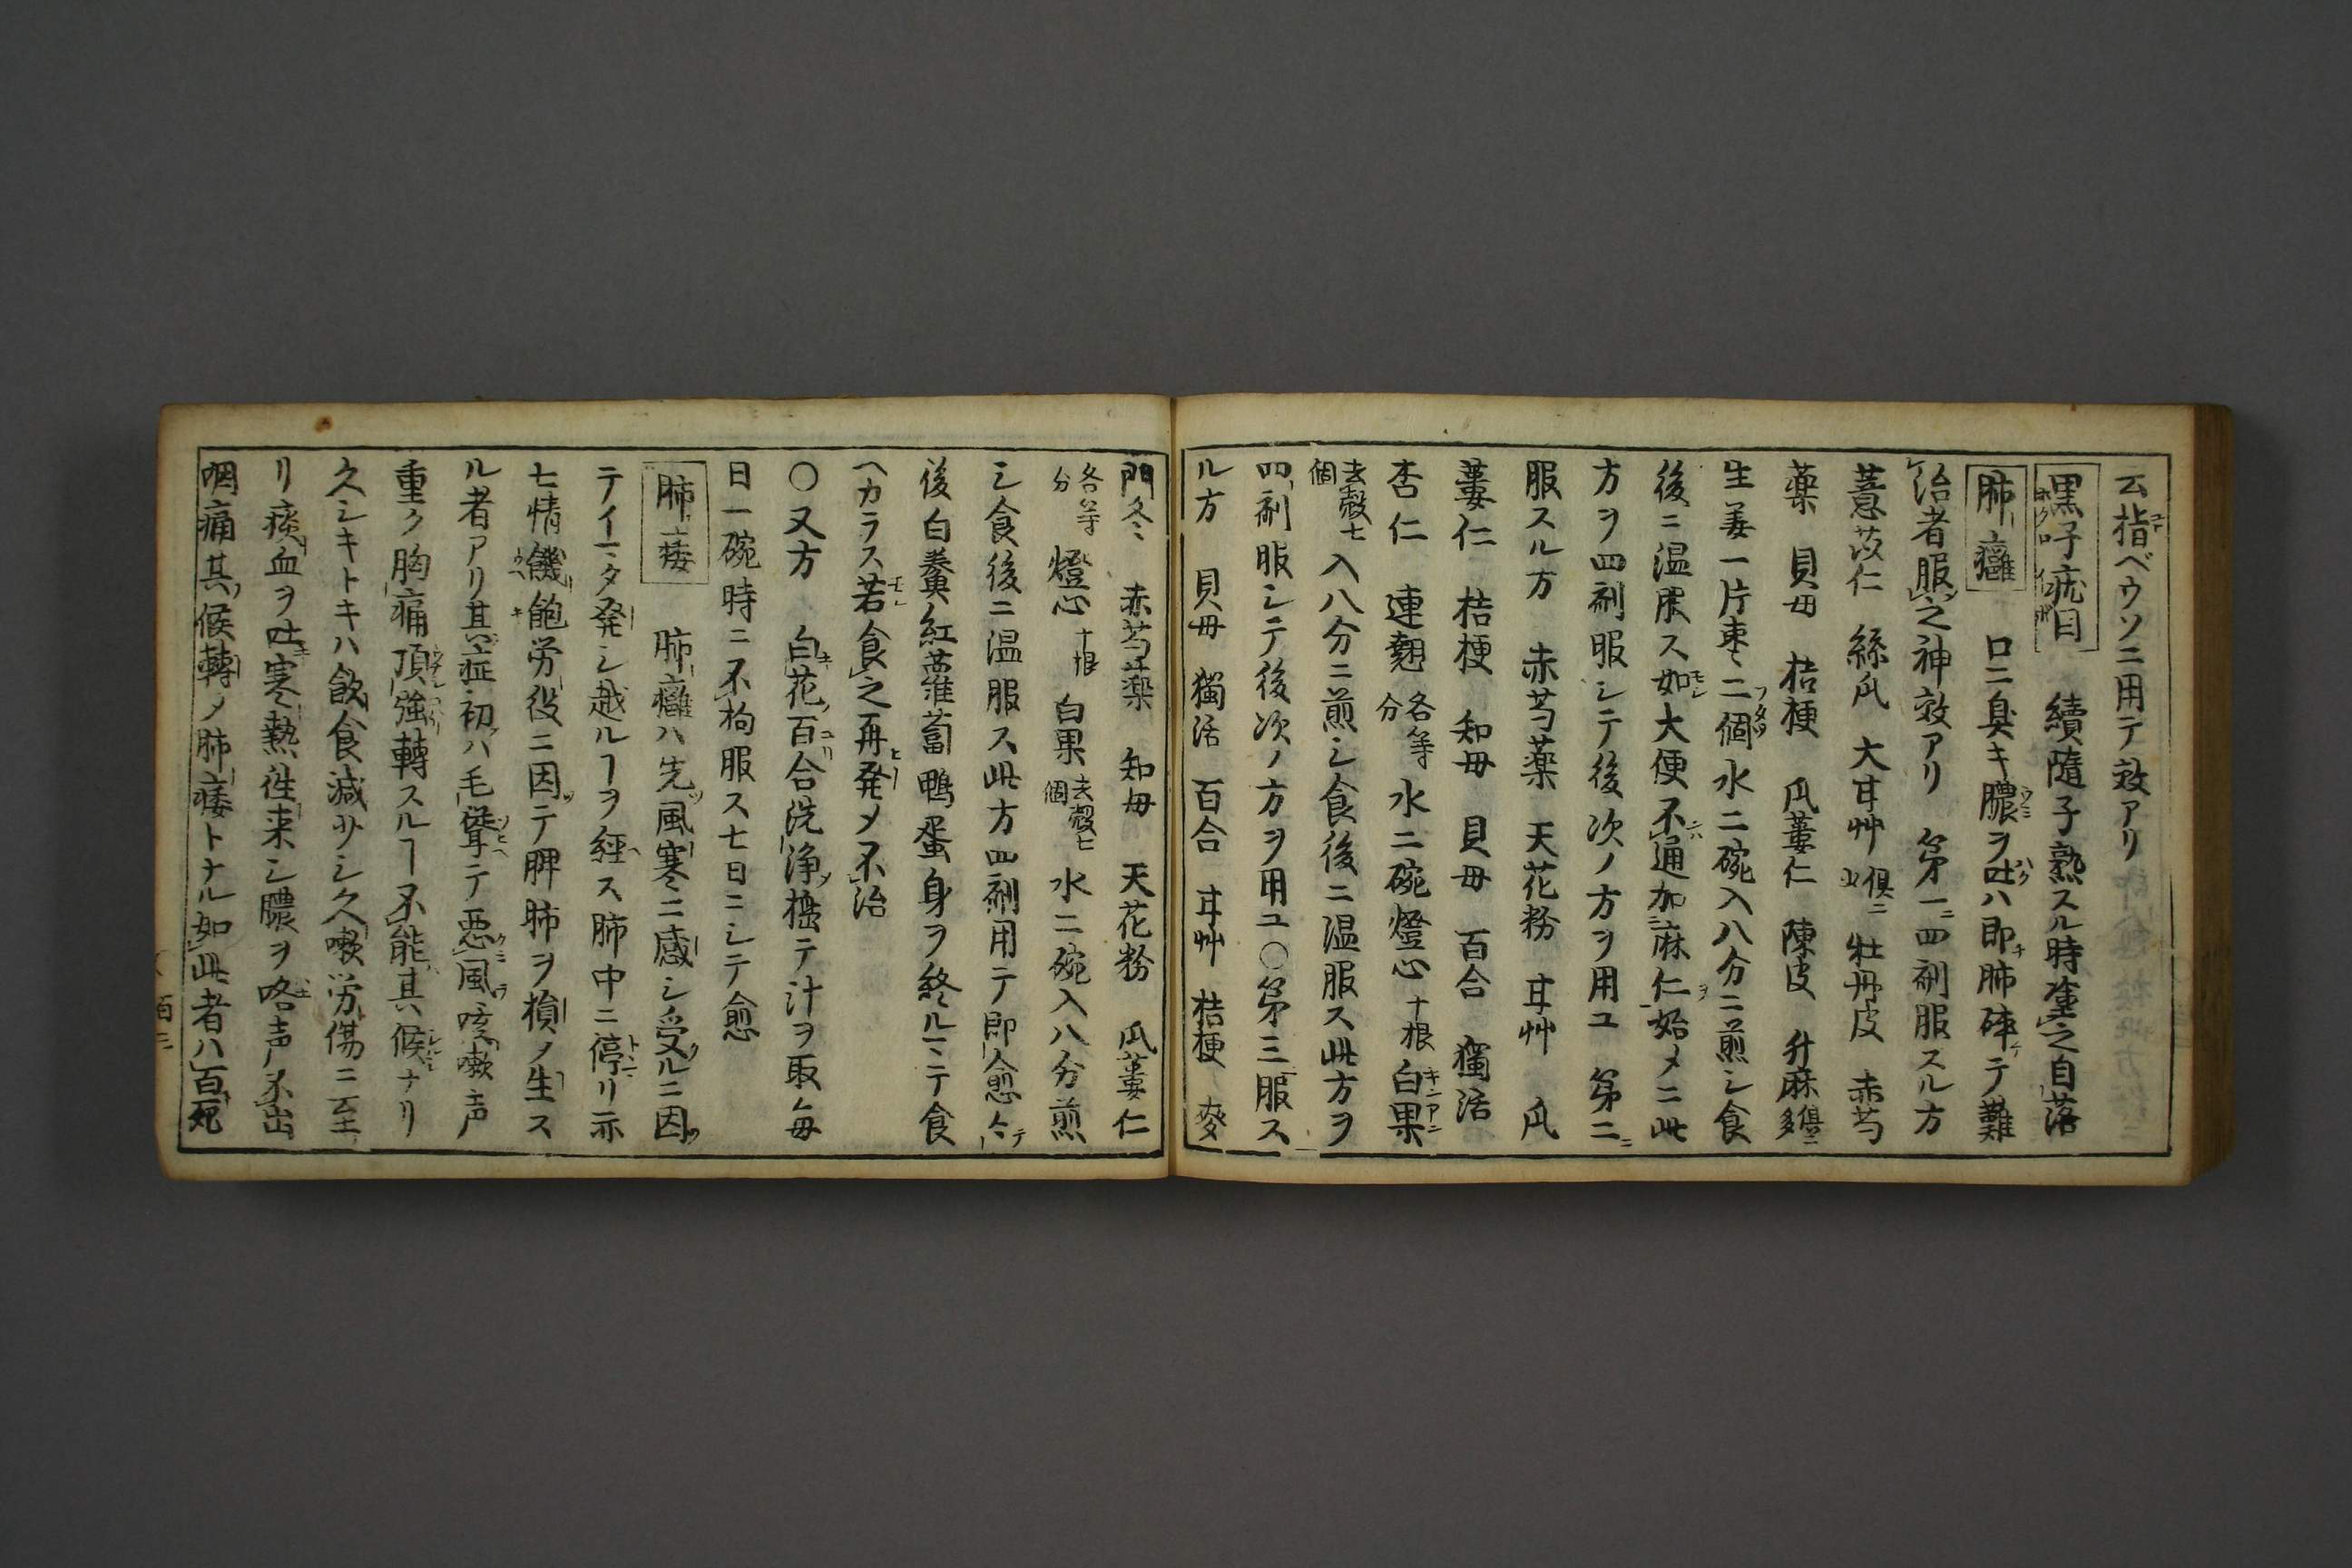 云指ベウソニ用テ效アリ
黒子疣目 續隨子熟スル時塗之自落
肺癰 口ニ臭キ膿ヲ吐ハ即肺疼テ難
治者服之神效アリ 第一四剤服スル方
薏苡仁 絲瓜 大甘艸 俱ニ 牡丹皮 赤芍
藥 貝母 桔梗 瓜蔞仁 陳皮 升麻 俱ニ多
生姜一片棗二個水二碗入八分ニ煎シ食
後ニ温服ス如大便不通加麻仁始メニ此
方ヲ四剤服シテ後次ノ方ヲ用ユ 第二ニ
服スル方 赤芍藥 天花粉 甘艸 瓜
蔞仁 桔梗 知母 貝母 百合 獨活
杏仁 連翹 各等分 水二碗燈心十根白果
去殼七個 入八分ニ煎シ食後ニ温服ス此方ヲ
四剤服シテ後次ノ方ヲ用ユ○第三服ス
ル方 貝母 獨活 百合 甘艸 桔梗 麥
門冬 赤芍藥 知母 天花粉 瓜蔞仁
各等分 燈心 十根 白果 去殼七個 水二碗入八分煎
シ食後ニ温服ス此方四剤用テ即愈
後白糞紅蘿蔔鴨蛋身ヲ終ルマテ食
ヘカラス若食之再発メ不治
○又方 白花百合洗浄擂テ汁ヲ取毎
日一碗時ニ不拘服ス七日ニシテ愈
肺痿 肺癰ハ先風寒ニ感シ受ルニ因
テイマタ発シ越ルヿヲ經ス肺中ニ停リ亦
七情饑飽労役ニ因テ脾肺ヲ損ノ生ス
ル者アリ其症初ハ毛聳テ悪風咳嗽声
重ク胸痛頂強轉スルヿ不能其候ナリ
久シキトキハ飲食減サシ久嗽労傷ニ至
リ痰血ヲ吐寒熱徃来シ膿ヲ咯声不出
咽痛其候轉ノ肺痿トナル如此者ハ百死
百三